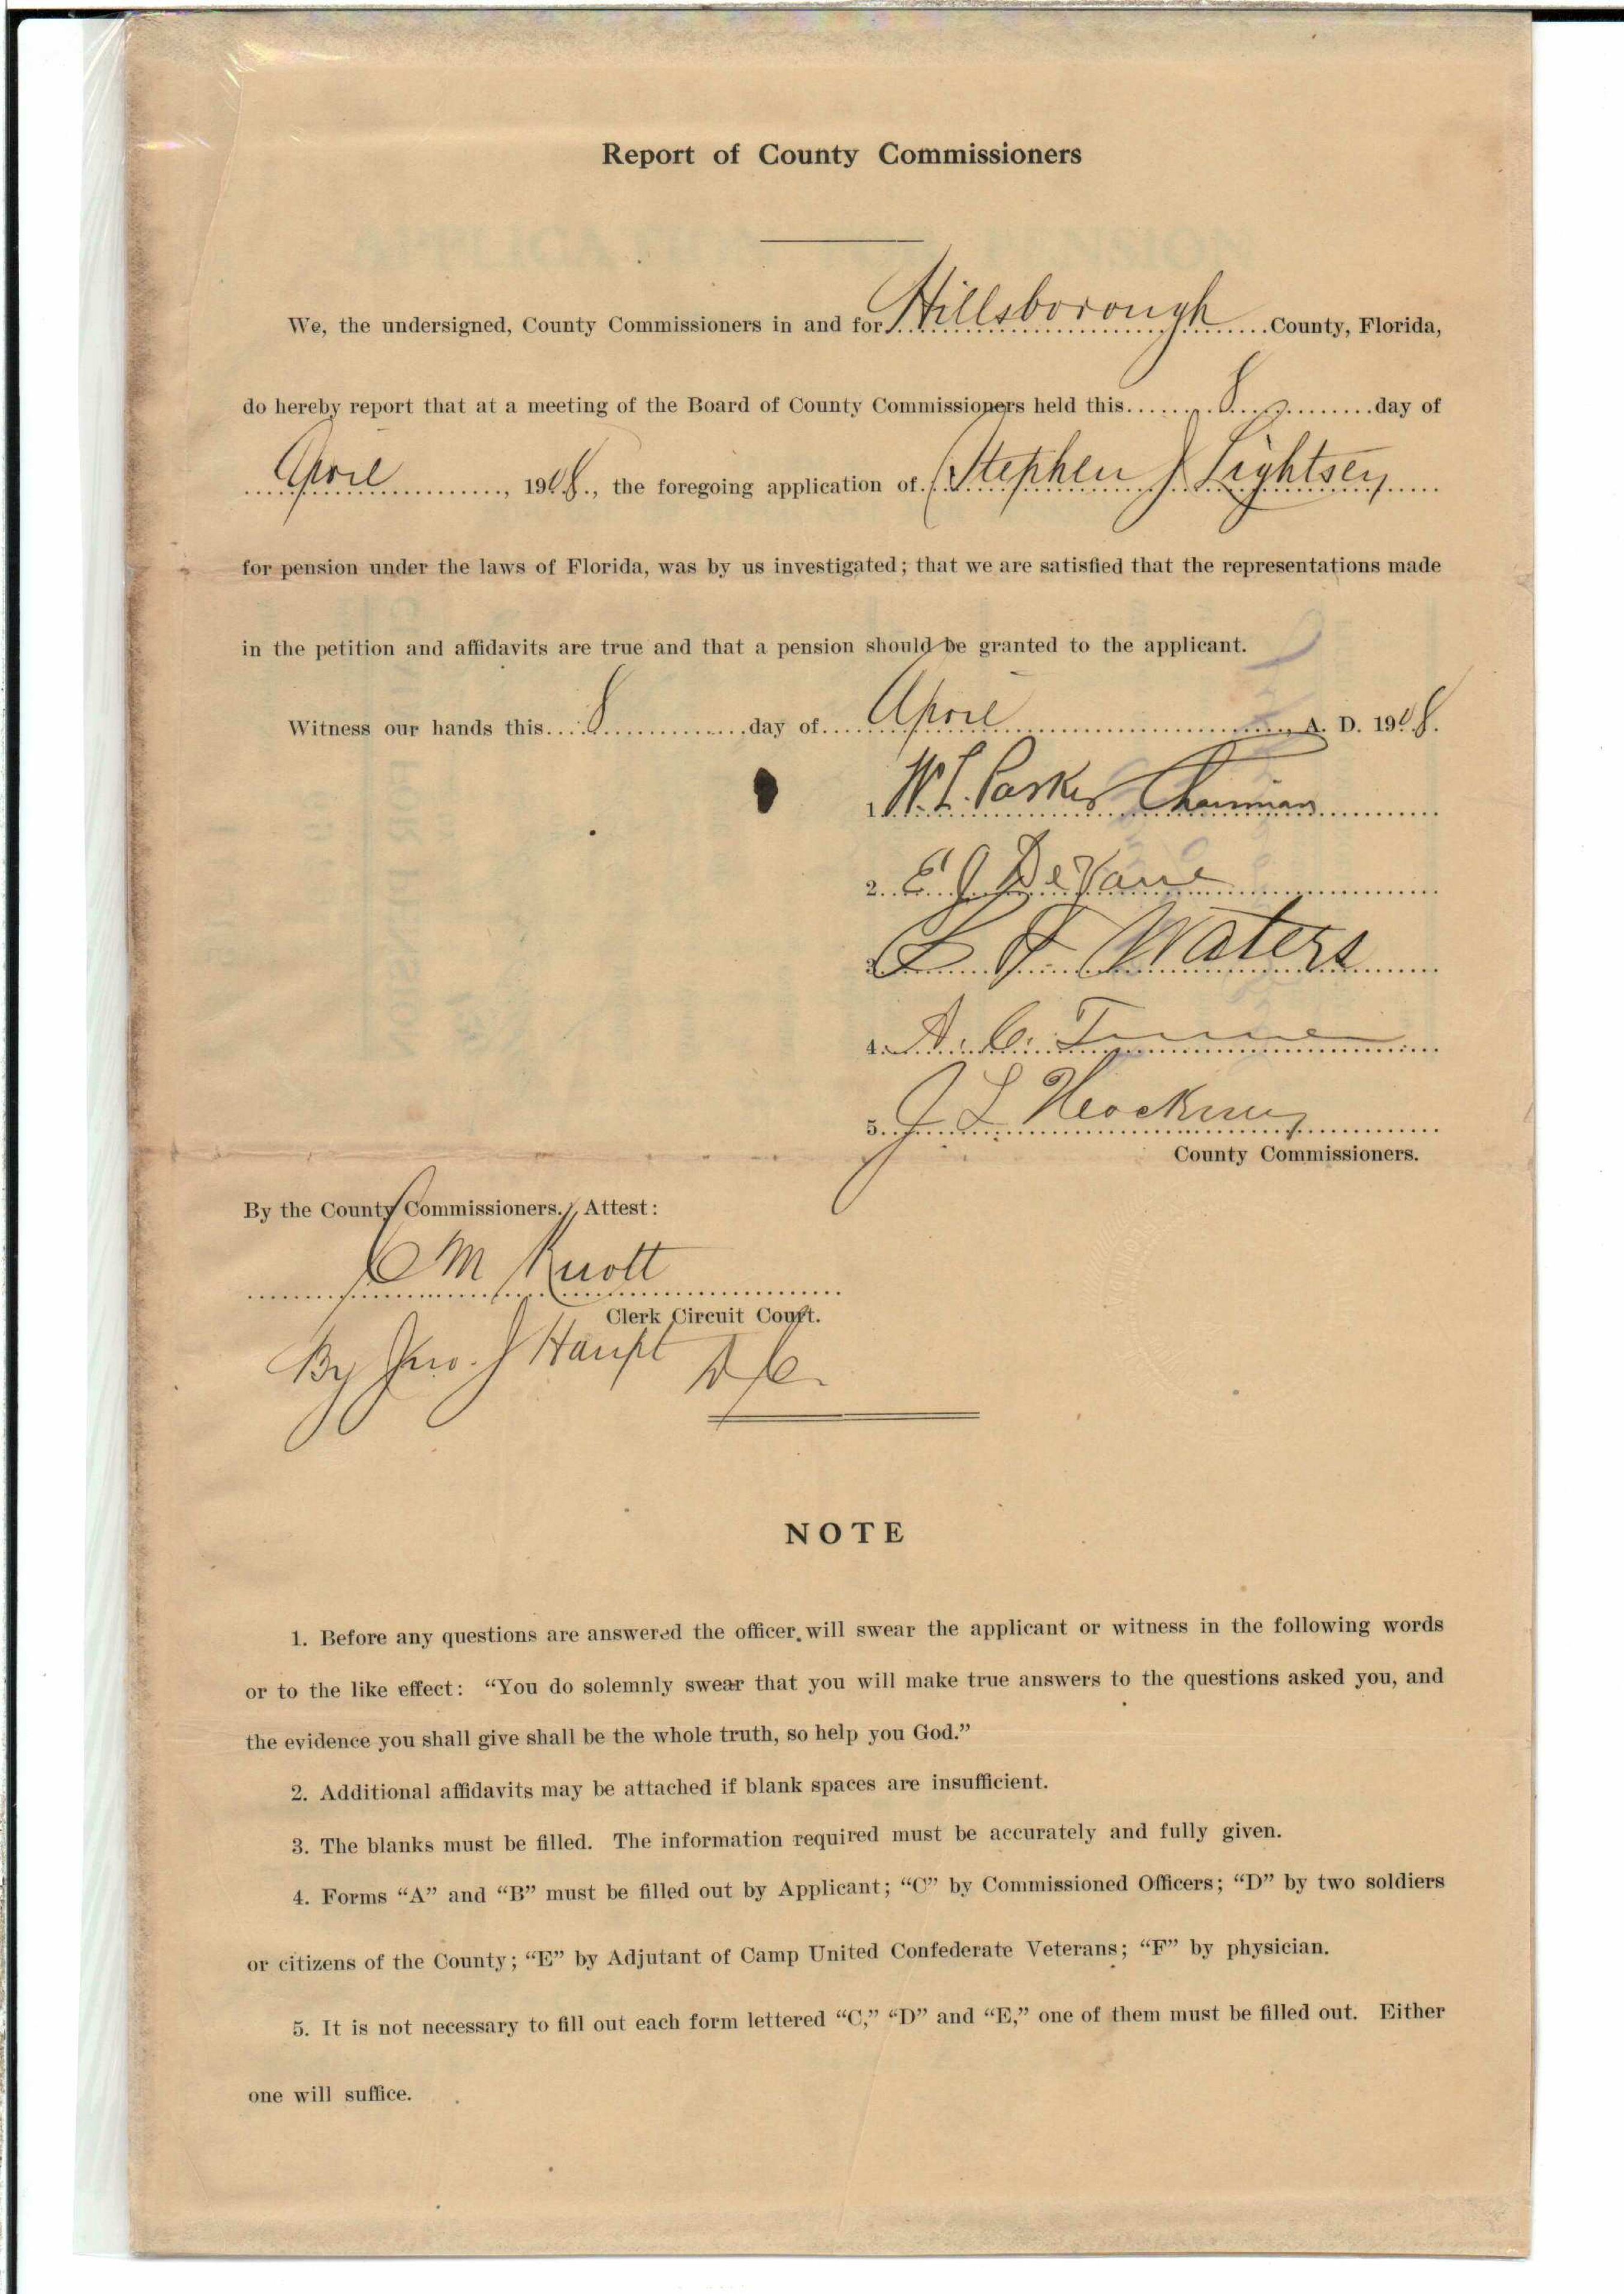 Report of County Commissioners
We, the undersigned, County Commissioners in and for Hillsborough County, Florida,
do hereby report that at a meeting of the Board of County Commissioners held this 8 day of
April, 1908, the foregoing application of Stephen J Lightsey
for pension under the laws of Florida, was by us investigated; that we are satisfied that the representations made
in the petition and affidavits are true and that a pension should be granted to the applicant.
Witness our hands this 8 day of April A. D. 1908.
1. W. L. Parker Chairman
2. E J DeVane
3. L F Waters
4. A. C.
5. J L
County Commissioners.
By the County Commissioners. Attest:
C M Knott
Clerk Circuit Court.
By Jno. J Haupt D C.
NOTE
1. Before any questions are answered the officer will swear the applicant or witness in the following words
or to the like effect: “You do solemnly swear that you will make true answers to the questions asked you, and
the evidence you shall give shall be the whole truth, so help you God.”
2. Additional affidavits may be attached if blank spaces are insufficient.
3. The blanks must be filled. The information required must be accurately and fully given.
4. Forms “A” and “B” must be filled out by Applicant; “C” by Commissioned Officers; “D” by two soldiers
or citizens of the County; “E” by Adjutant of Camp United Confederate Veterans; “F” by physician.
5. It is not necessary to fill out each form lettered “C,” “D” and “E,” one of them must be filled out. Either
one will suffice.